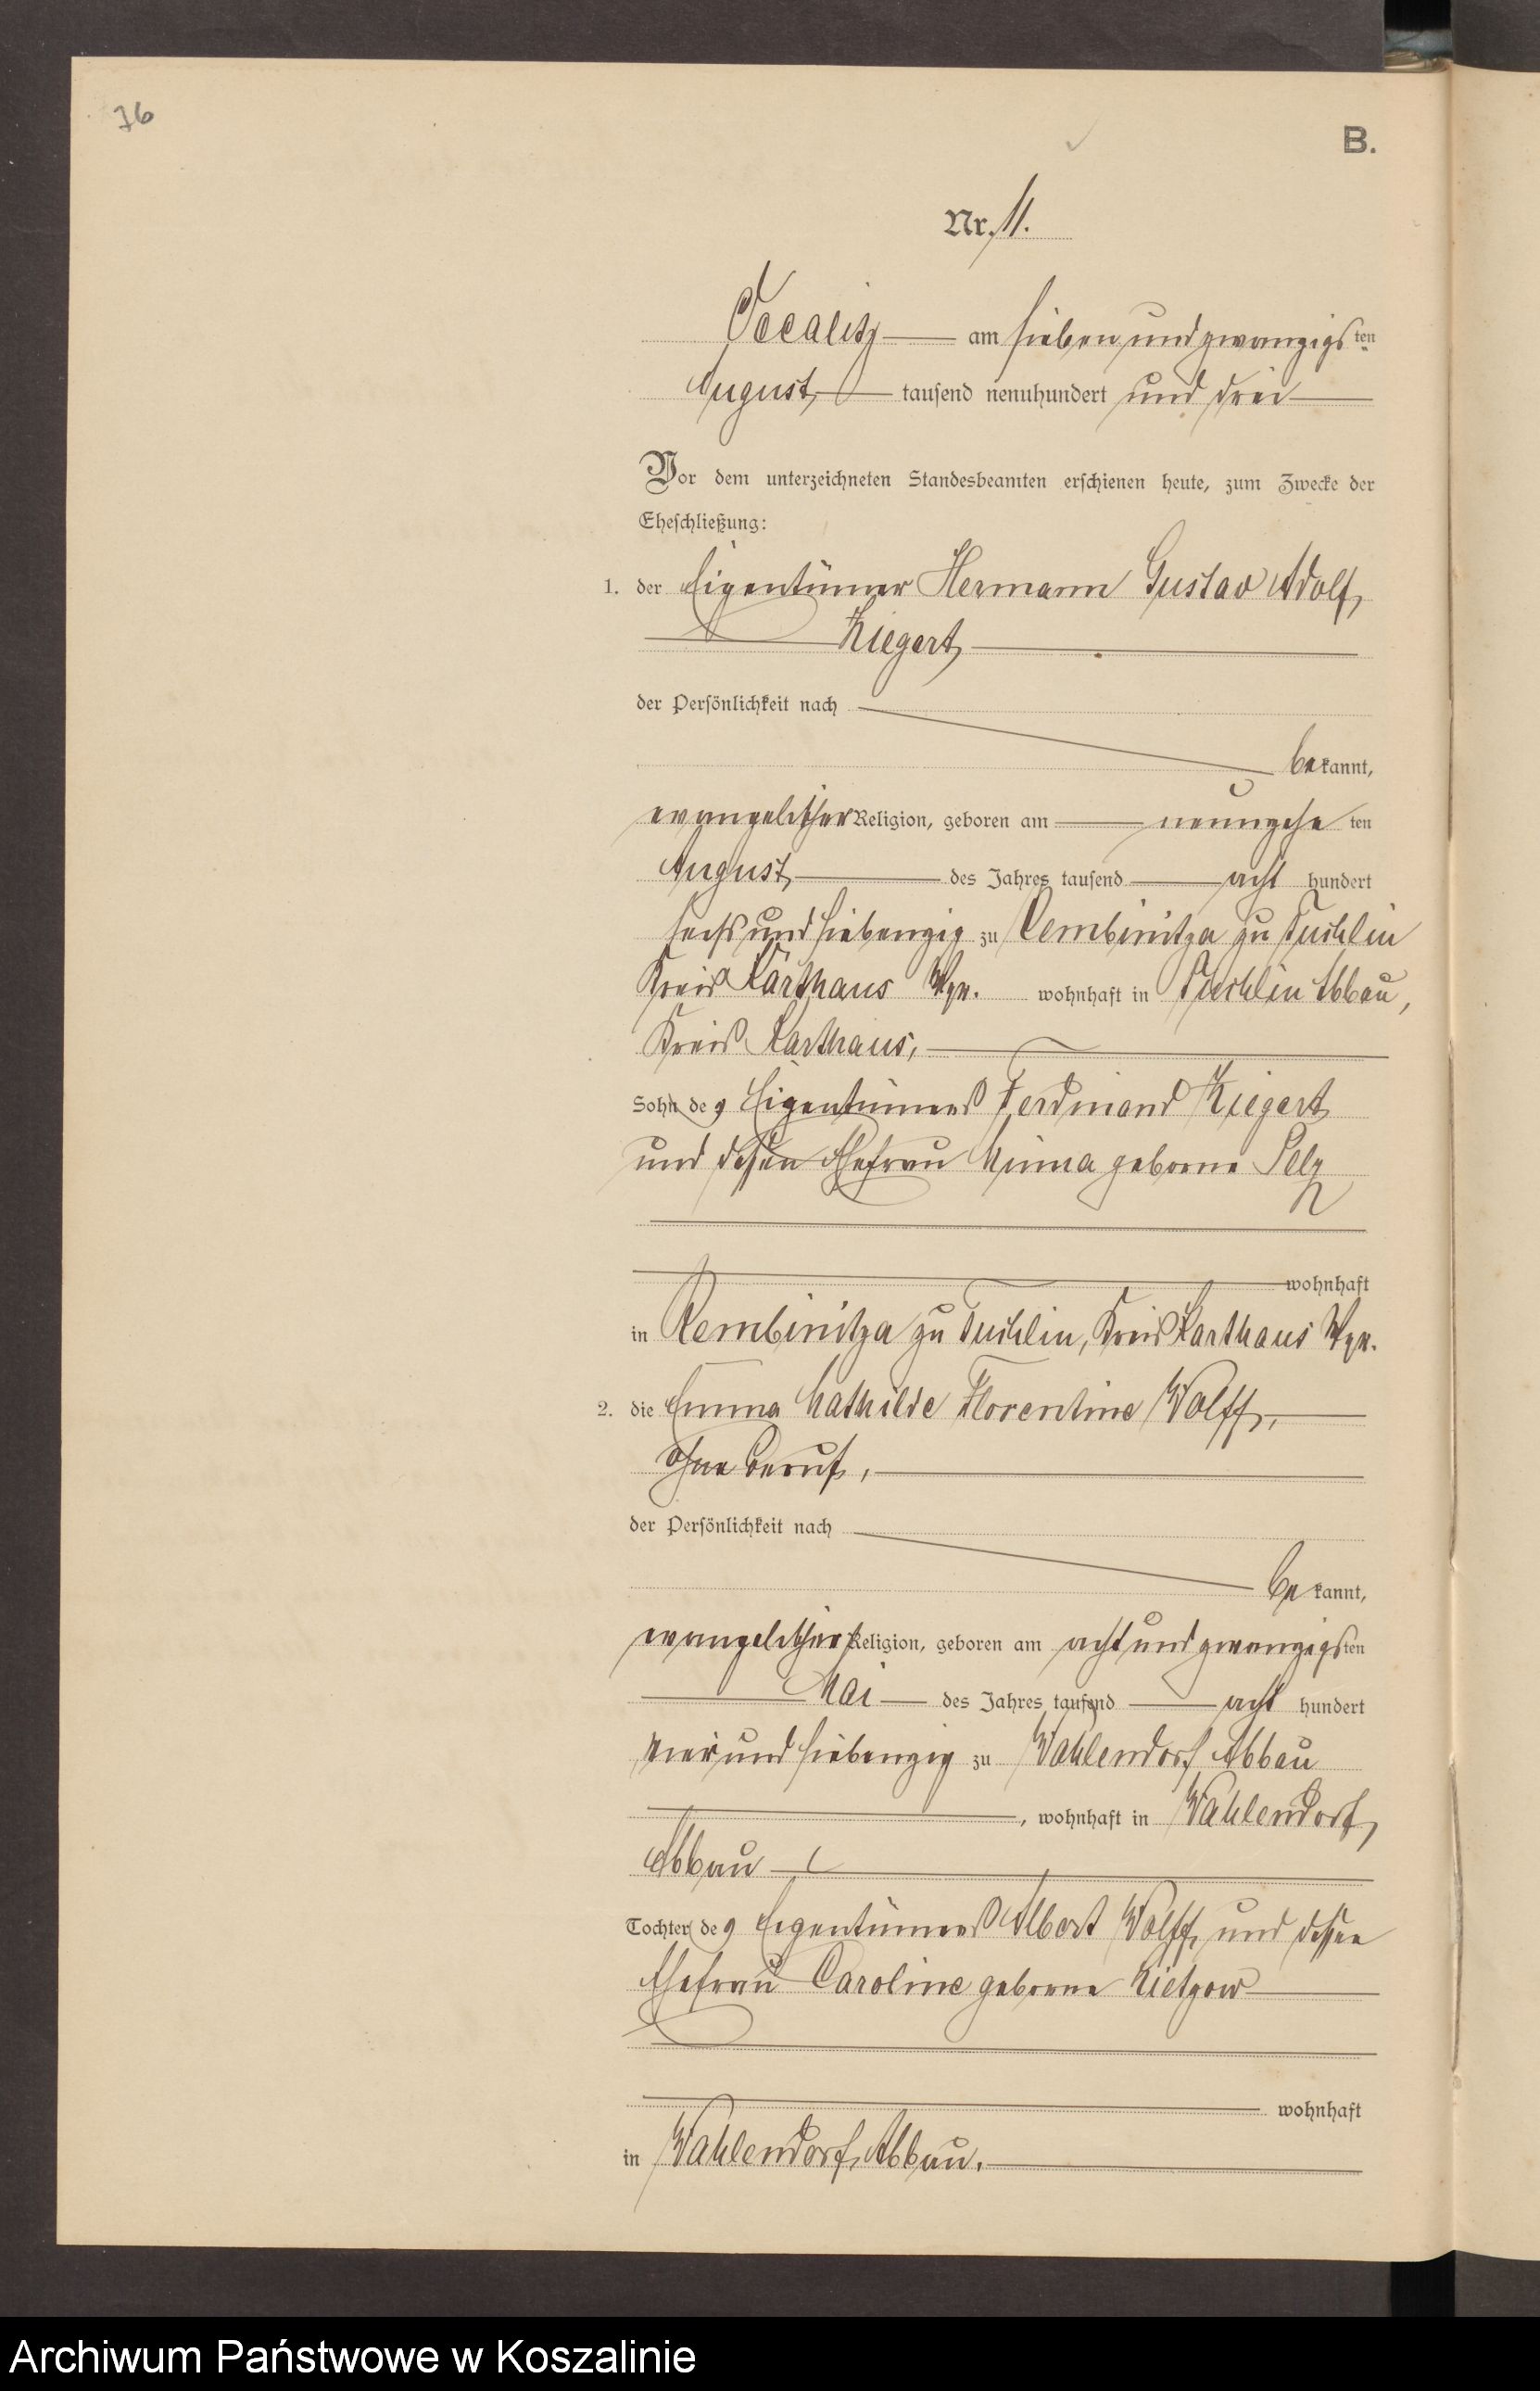 76
B.
Nr. 11.
Vccalitz am sieben und zwanzigsten
August tausend neunhundert und drei
Vor dem unterzeichneten Standesbeamten erschienen heute, zum Zwecke der
Eheschließung:
1. der Eigentümer Hermann Gustav Adolf
Kiegert
der Persönlichkeit nach
bekannt,
evangelischer Religion, geboren am neunzehnten
August des Jahres tausend acht hundert
sechs und siebenzig zu Rembinitza zu Tuchlin
Kreis Karthaus Wpr. wohnhaft in Tuchlin Abbau,
Kreis Karthaus,
Sohn des Eigentümers Ferdinand Kiegert
und dessen Ehefrau Minna geborne Pelz
wohnhaft
in Rembinitza zu Tuchlin, Kreis Karthaus Wpr.
2. die Emma Mathilde Florentine Wolff,
ohne Beruf,
der Persönlichkeit nach
bekannt,
evangelischer Religion, geboren am acht und zwanzigsten
Mai des Jahres tausend acht hundert
vier und siebenzig zu Wahlendorf Abbau
, wohnhaft in Wahlendorf,
Abbau
Tochter des Eigentümers Albert Wolff und dessen
Ehefrau Caroline geborne Kietzow
wohnhaft
in Wahlendorf, Abbau.
Archiwum Państwowe w Koszalinie